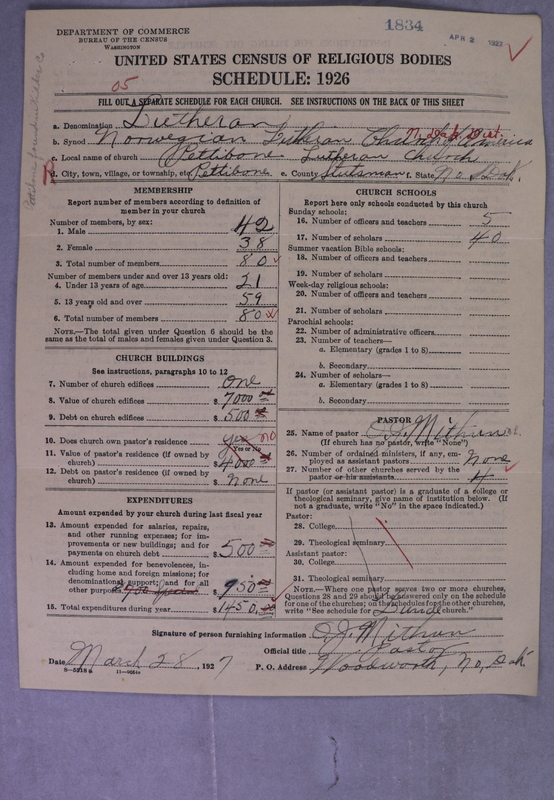 1834
DEPARTMENT OF COMMERCE
BUREAU OF THE CENSUS
WASHINGTON
APR 2 1927
UNITED STATES CENSUS OF RELIGIOUS BODIES
SCHEDULE: 1926
05
FILL OUT A SEPARATE SCHEDULE FOR EACH CHURCH. SEE INSTRUCTIONS ON THE BACK OF THIS SHEET
a. Denomination Lutheran
N. Dak. Dist.
b. Synod Norwegian Lutheran Church of America
c. Local name of church Pettibone Lutheran Church
d. City, town, village, or township, etc. Pettibone e. County Stutsman f. State No. Dak.
MEMBERSHIP
Report number of members according to definition of member in your church
Number of members, by sex:
1. Male 42
2. Female 38
3. Total number of members 80
Number of members under and over 13 years old:
4. Under 13 years of age 21
5. 13 years old and over 59
6. Total number of members 80
NOTE.—The total given under Question 6 should be the same as the total of males and females given under Question 3.
CHURCH BUILDINGS
See instructions, paragraphs 10 to 12
7. Number of church edifices one
8. Value of church edifices $ 7000
9. Debt on church edifices $ 500
10. Does church own pastor's residence yes no
Yes or No
11. Value of pastor's residence (if owned by church) $ 4000
12. Debt on pastor's residence (if owned by church) $ None
EXPENDITURES
Amount expended by your church during last fiscal year
13. Amount expended for salaries, repairs, and other running expenses; for improvements or new buildings; and for payments on church debt $ 500
14. Amount expended for benevolences, including home and foreign missions; for denominational support; and for all other purposes $ 950
15. Total expenditures during year $ 1450
CHURCH SCHOOLS
Report here only schools conducted by this church
Sunday schools:
16. Number of officers and teachers 5
17. Number of scholars 40
Summer vacation Bible schools:
18. Number of officers and teachers
19. Number of scholars
Week-day religious schools:
20. Number of officers and teachers
21. Number of scholars
Parochial schools:
22. Number of administrative officers
23. Number of teachers—
a. Elementary (grades 1 to 8)
b. Secondary
24. Number of scholars—
a. Elementary (grades 1 to 8)
b. Secondary
PASTOR
25. Name of pastor O. J. Mithun
(If church has no pastor, write "None")
26. Number of ordained ministers, if any, employed as assistant pastors None
27. Number of other churches served by the pastor or his assistants 4
If pastor (or assistant pastor) is a graduate of a college or theological seminary, give name of institution below. (If not a graduate, write "No" in the space indicated.)
Pastor:
28. College
29. Theological seminary
Assistant pastor:
30. College
31. Theological seminary
NOTE.—Where one pastor serves two or more churches, Questions 28 and 29 should be answered only on the schedule for one of the churches; on the schedules for the other churches, write "See schedule for church."
Signature of person furnishing information O. J. Mithun
Official title Pastor
Date March 28, 1927 P. O. Address Woodworth, No. Dak.